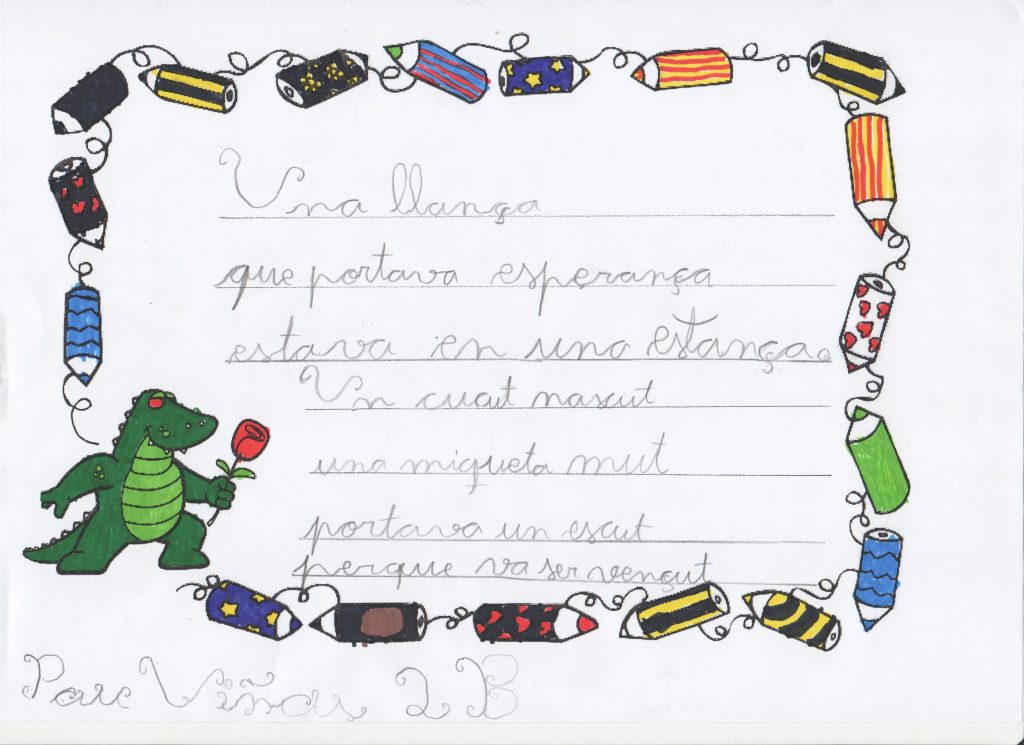 Una llança
que portava esperança
estava en una estança.
Un cuaut nascut
una miqueta mut
portava un escut
perque va ser vençut
Pau Viñas 2B